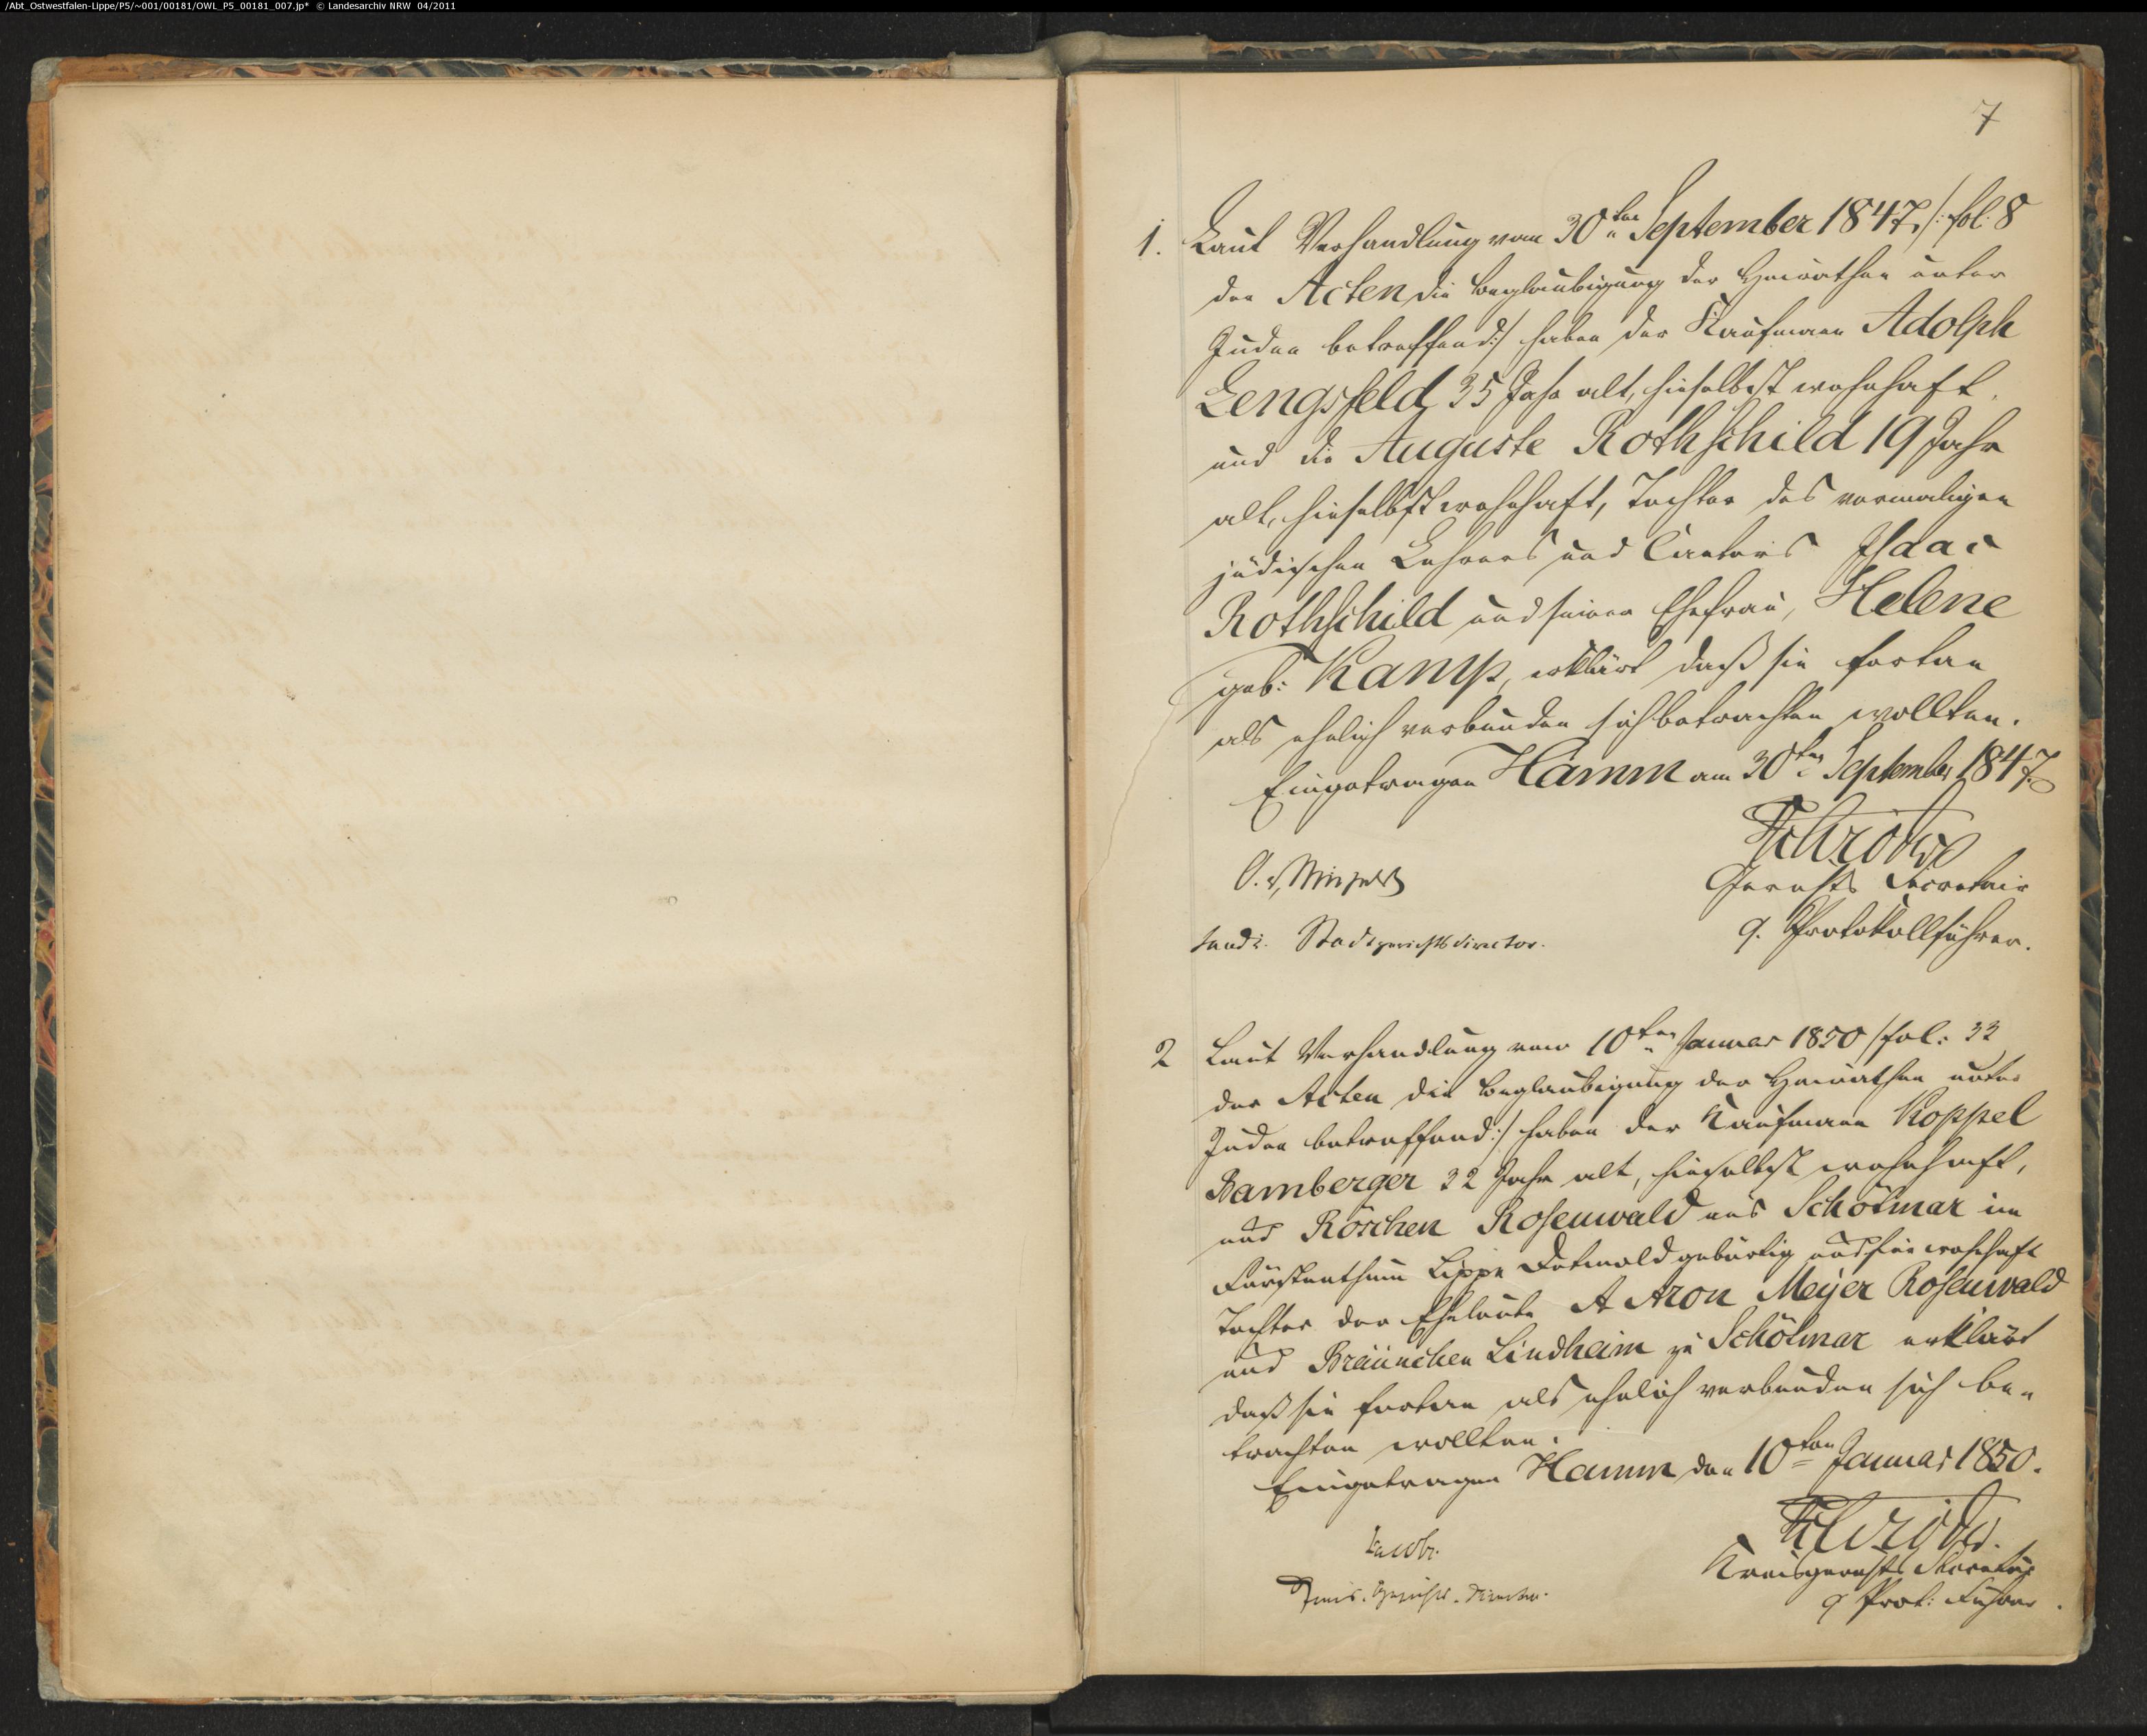 /Abt_Ostwestfalen-Lippe/P5/~001/00181/OWL_P5_00181_007.jp* © Landesarchiv NRW 04/2011
7
1. Laut Verhandlung vom 30ten September 1847 /: fol. 8
der Acten die Beglaubigung der Heirathen unter
Juden betreffend :/ haben der Kaufmann Adolph
Lengsfeld, 35 Jahr alt, hieselbst wohnhaft,
und die Auguste Rothschild 19 Jahr
alt, hieselbst wohnhaft, Tochter des vormaligen
jüdischen Lehrers und Cantors Isaac
Rothschild und seiner Ehefrau, Helene
geb: Kamp, erklärt daß sie fortan
als ehelich verbunden sich betrachten wollten.
Eingetragen Hamm am 30ten September 1847.
Schröder
Gerichts Secretair
q. Protokollführer.
Land u. Stadtgerichtsdirector.
2 Laut Verhandlung vom 10ten Januar 1850 /fol: 33
der Acten die Beglaubigung der Heirathen unter
Juden betreffend :/ haben der Kaufmann Koppel
Bamberger 32 Jahr alt, hieselbst wohnhaft,
und Röschen Rosenwald aus Schötmar im
Fürstenthum Lippe Detmold gebürtig und hier wohnhaft
Tochter der Eheleute Aron Meyer Rosenwald
und Bräunchen Lindheim zu Schötmar erklärt
daß sie fortan als ehelich verbunden sich be-
trachten wollten.
Eingetragen Hamm den 10ten Januar 1850.
Schröder
Kreisgerichts Secretär
q Prot: Führer.
Kreis-Gerichts-Director.